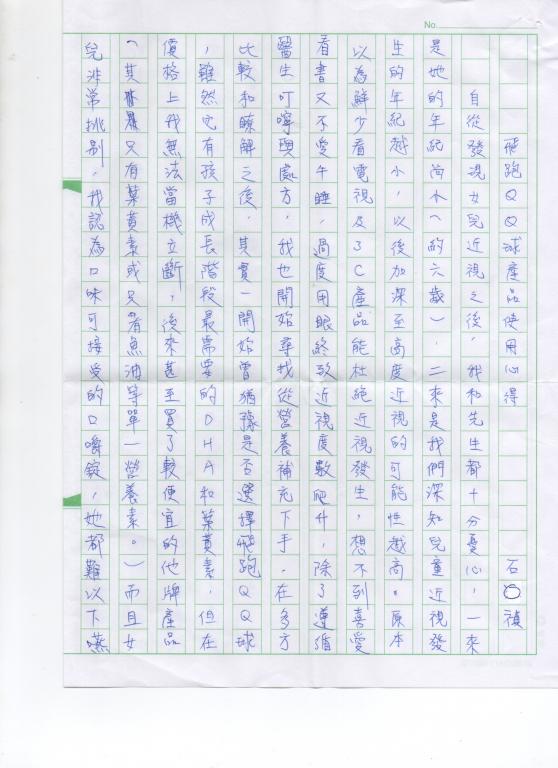 No.
飛跑QQ球產品使用心得 石○禎
自從發現女兒近視之後，我和先生都十分憂心，一來
是她的年紀尚小（約六歲），二來是我們深知兒童近視發
生的年紀越小，以後加深至高度近視的可能性越高。原本
以為鮮少看電視及3C產品能杜絕近視發生，想不到喜愛
看書又不愛午睡，過度用眼終致近視度數爬升，除了遵循
醫生叮嚀與處方，我也開始尋找從營養補充下手，在多方
比較和瞭解之後，其實一開始曾猶豫是否選擇飛跑QQ球
，雖然它有孩子成長階段最需要的DHA和葉黃素，但在
價格上我無法當機立斷，後來甚至買了較便宜的他牌產品
（其只有葉黃素或只有魚油等單一營養素。）而且女
兒非常挑剔，我認為口味可接受的口嚼錠，她都難以下嚥